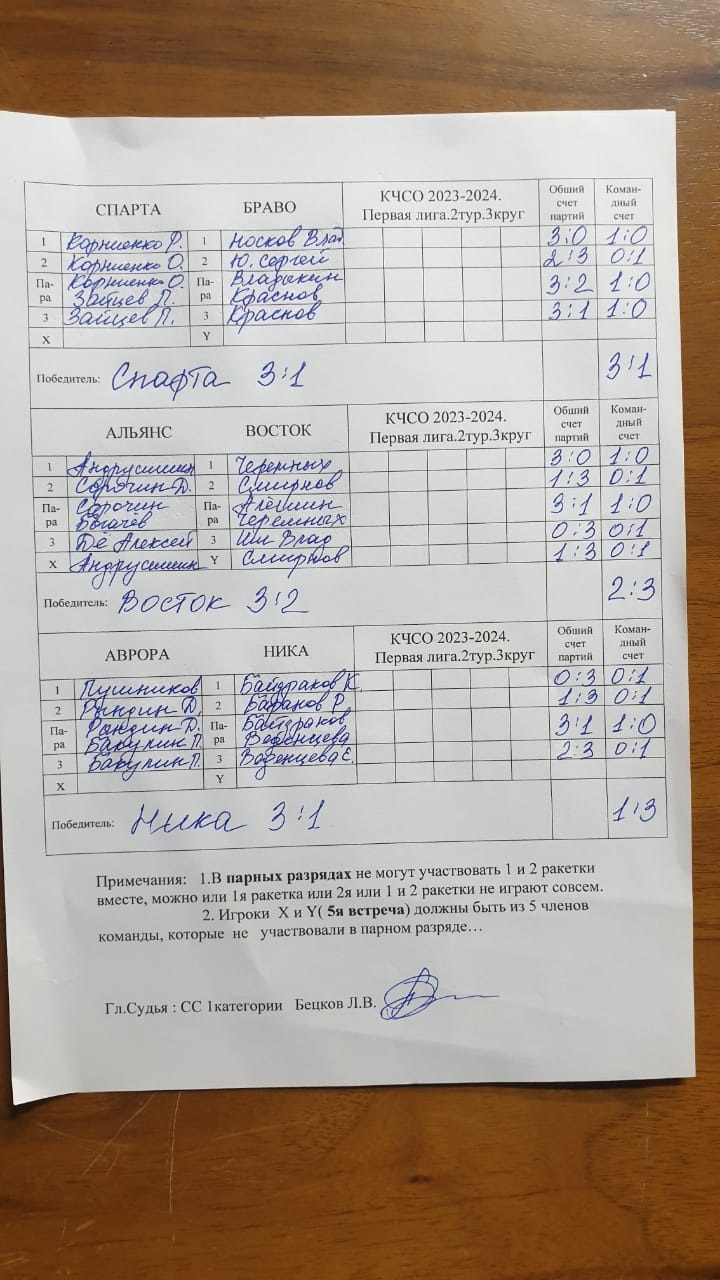 СПАРТА БРАВО КЧСО 2023-2024. Первая лига.2тур.3круг Обший счет партий Коман-дный счет
1 Корниенко Р. 1 Носков Влад 3:0 1:0
2 Корниенко О. 2 Ю. Сергей 2:3 0:1
Па-ра Корниенко О. Па-ра Владыкин 3:2 1:0
Зайцев П. Краснов
3 Зайцев П. 3 Краснов 3:1 1:0
X Y
Победитель: Спарта 3:1 3:1
АЛЬЯНС ВОСТОК КЧСО 2023-2024. Первая лига.2тур.3круг Обший счет партий Коман-дный счет
1 Андрусишин 1 Черемных 3:0 1:0
2 Сорочин Д. 2 Смирнов 1:3 0:1
Па-ра Сорочин Па-ра Алёшин 3:1 1:0
Богачёв Черемных
3 Дё Алексей 3 Им Влад 0:3 0:1
X Андрусишин Y Смирнов 1:3 0:1
Победитель: Восток 3:2 2:3
АВРОРА НИКА КЧСО 2023-2024. Первая лига.2тур.3круг Обший счет партий Коман-дный счет
1 Пушников 1 Байдраков К. 0:3 0:1
2 Рандин Д. 2 Баранов Р. 1:3 0:1
Па-ра Рандин Д. Па-ра Байдраков 3:1 1:0
Бакулин П. Веденцева
3 Бакулин П. 3 Веденцева Е. 2:3 0:1
X Y
Победитель: Ника 3:1 1:3
Примечания: 1.В парных разрядах не могут участвовать 1 и 2 ракетки
вместе, можно или 1я ракетка или 2я или 1 и 2 ракетки не играют совсем.
2. Игроки X и Y( 5я встреча) должны быть из 5 членов
команды, которые не участвовали в парном разряде…
Гл.Судья : СС 1категории Бецков Л.В.